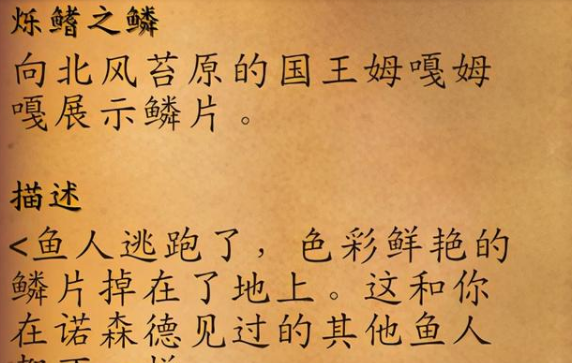 烁鳍之鳞
向北风苔原的国王姆嘎姆
嘎展示鳞片。
描述
<鱼人逃跑了，色彩鲜艳的
鳞片掉在了地上。这和你
在诺森德见过的其他鱼人